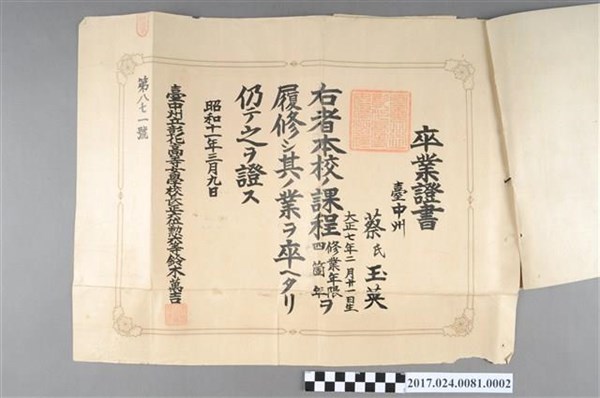 卒業證書
臺中州
蔡氏玉英
大正七年二月廿一日生
右者本校ノ課程修業年限四箇年ヲ
履修シ其ノ業ヲ卒ヘタリ
仍テ之ヲ證ス
昭和十一年三月九日
臺中州立彰化高等女學校長正六位勲六等鈴木萬吉
第八七一號
2017.024.0081.0002